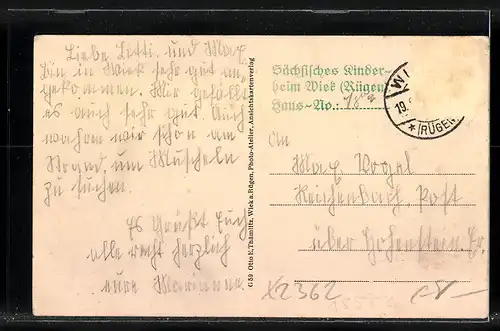 Liebe Lotti und Max
bin in Wiek sehr gut an-
gekommen. Mir gefällt
es auch sehr gut. Auch
wahren wir schon am
Strand, um Muscheln
zu suchen.
Es Grüßt Euch
alle recht herzlich
eure Marianne
G 59 Otto E. Thämlitz, Wiek a. Rügen, Photo-Atelier, Ansichtskartenverlag
Sächsisches Kinder-
heim Wiek (Rügen)
Haus-No.:
W
19.
*(RÜGEN
An
Max Vogel
Reichenbach, Post
über Hohenstein Er.
X2362